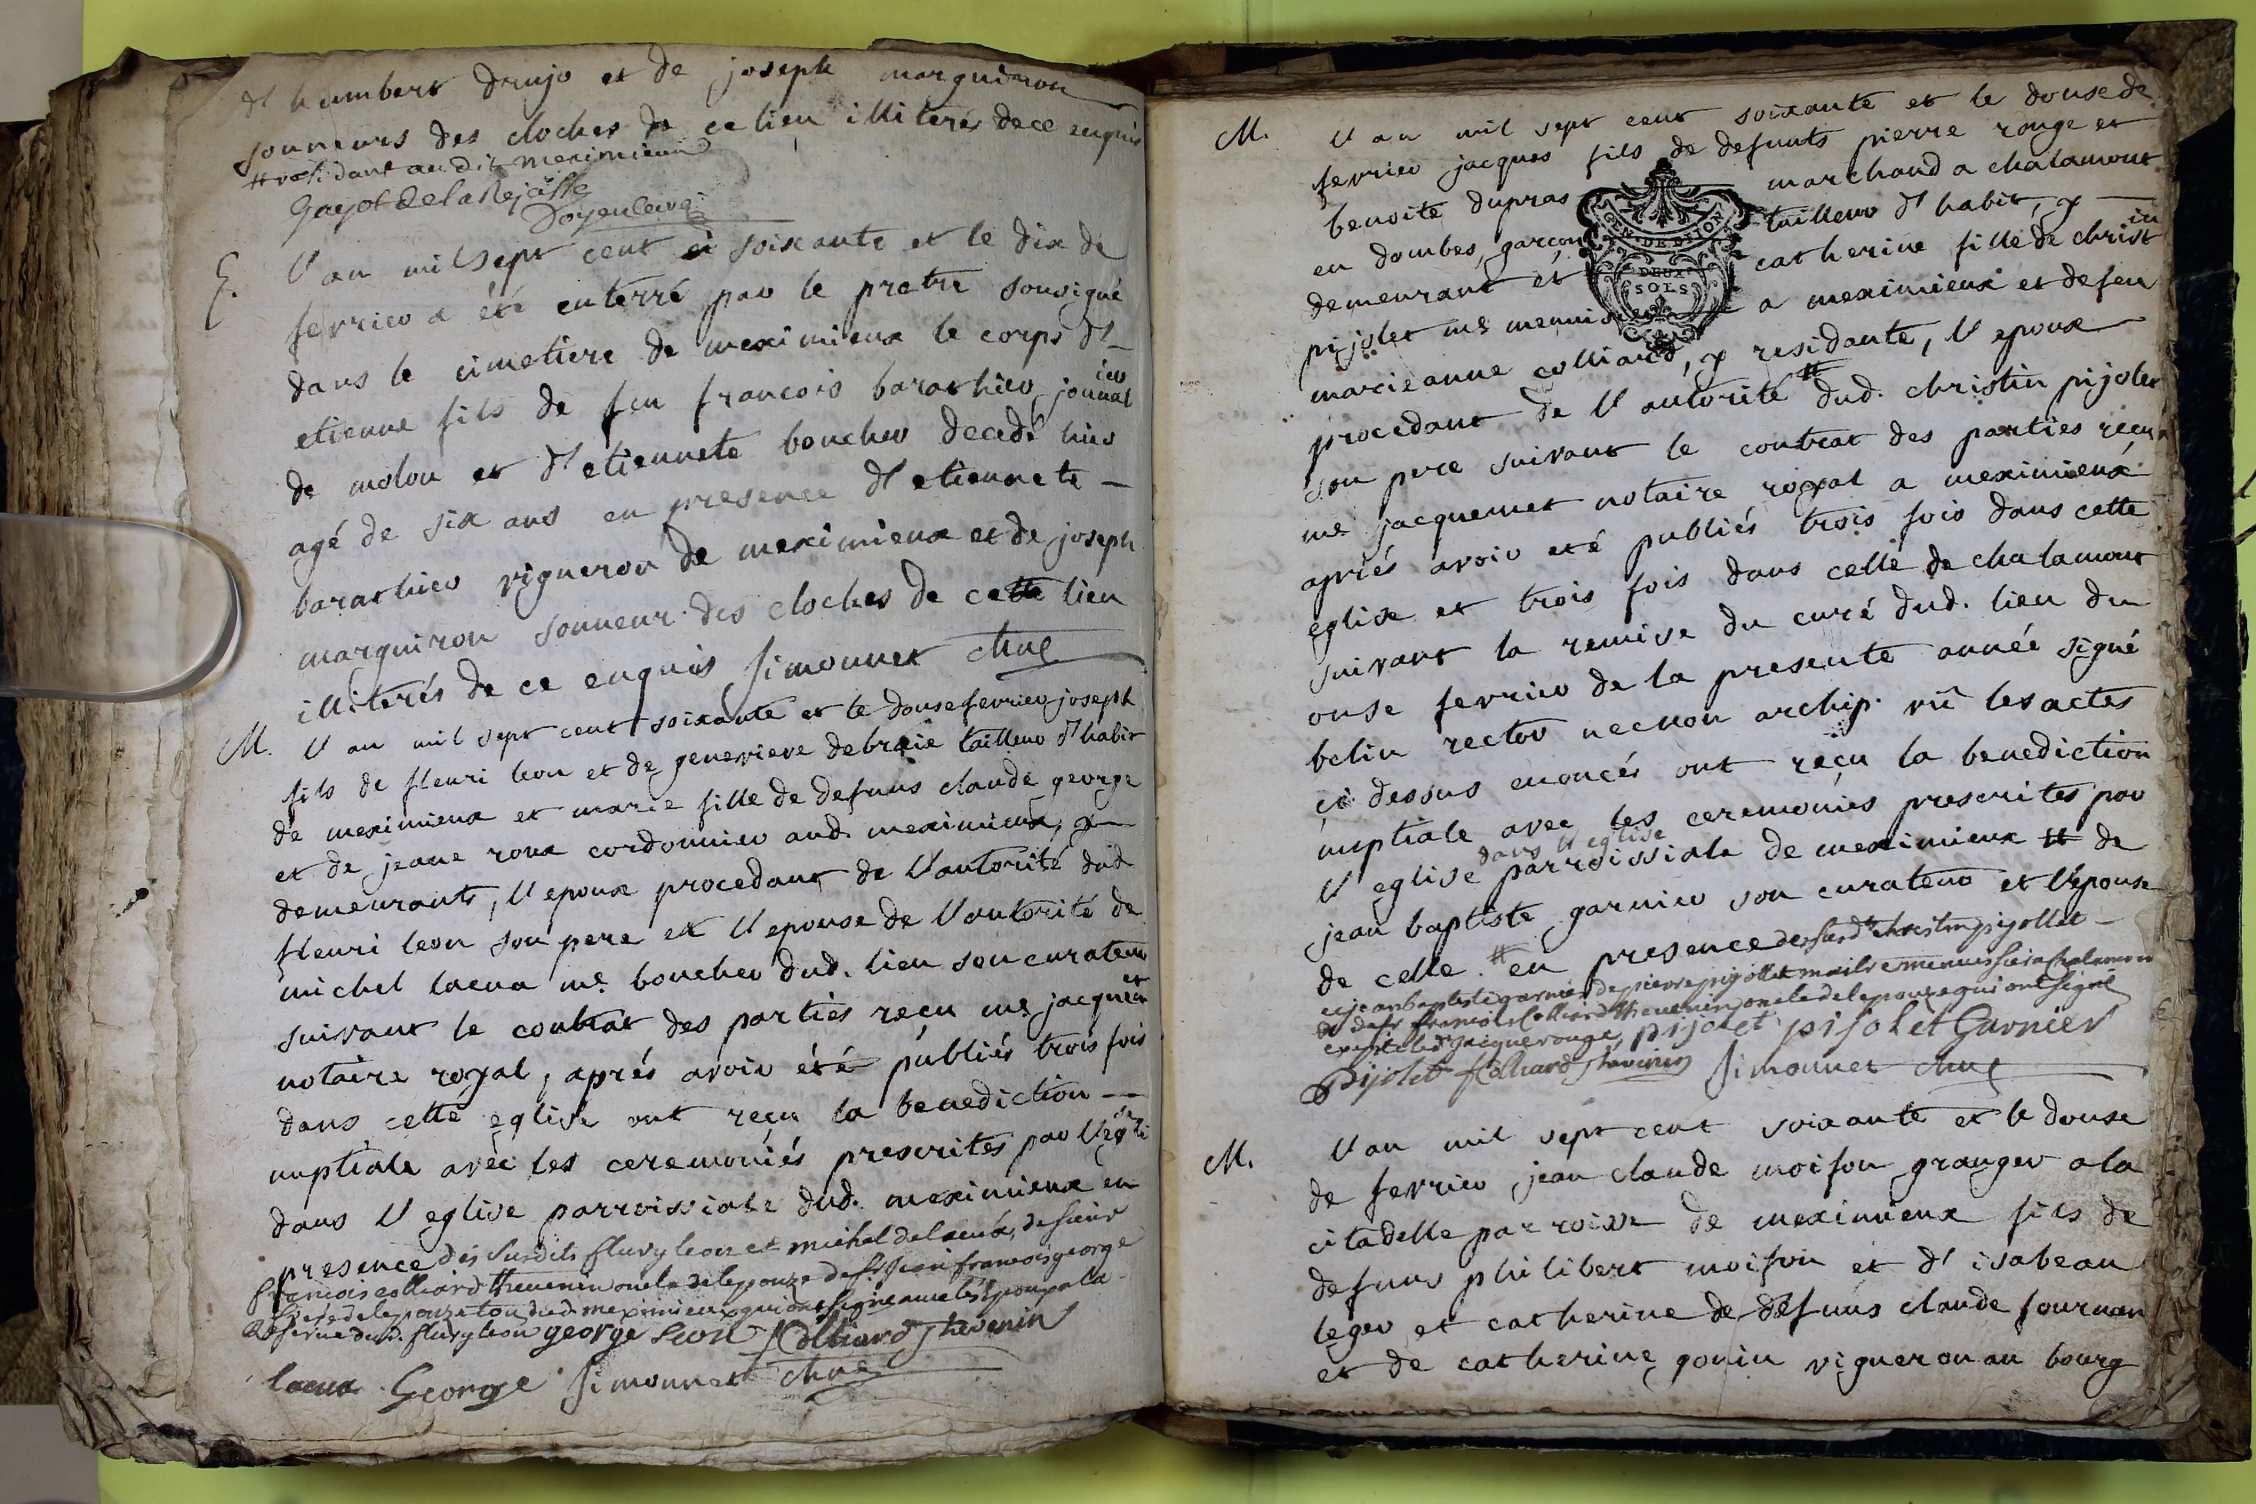 d'humbert drujo et de joseph marguiron
sonneurs des cloches de ce lieu illiterés de ce enquis
# residant audit meximieux
Gayot de la Rejasse
Doyen curé
E. l'an mil sept cent soixante et le dix de
fevrier a été enterré par le pretre sousigné
dans le cimetiere de meximieux le corps d'
etienne fils de feu francois barathier journalier
de molon et d'etiennete boucher decedé hier
agé de six ans en presence d'etiennete
barathier vigneron de meximieux et de joseph
marguiron sonneur des cloches de cette lieu
illiterés de ce enquis Simonnet
M. l'an mil sept cent soixante et le douse fevrier joseph
fils de fleuri leon et de genevieve debraie tailleur d'habit
de meximieux et marie fille de defuns claude george
et de jeane roux cordonnier aud. meximieux, y
demeurants, l'epoux procedant de l'autorité dud
fleuri leon son pere et l'epouse de l'autorité de
michel lacua me. boucher dud. lieu son curateur
suivant le contrat des parties reçu me jacquemet
notaire royal, aprés avoir été publiés trois fois
dans cette eglise ont reçu la benediction
nuptiale avec les ceremoniés prescrites par l'eglise
dans l'eglise parroissiale dud. meximieux en
presence des susdits fleury leon et michel delacua, de sieur
francois colliard thevenin oncle de lepouze de sr jean francois george
frere de lepouze tou dud. meximieux qui ont signé avec les epoux a la
reserve dud. fleury leon george leon f Colliard Thevenin
lacua George Simonnet
M. l'an mil sept cent soixante et le douse de
fevrier jacques fils de defunts pierre rouge et
benoite dupras marchand a chalamont
en dombes, garçon tailleur d'habit, y
demeurant et catherine fille de christin
pijolet me menuisier a meximieux et de feu
marieanne colliard, y residante, l'epoux
procedant de l'autorité # dud. christin pijolet
son pere suivant le contrat des parties reçu
me jacquemet notaire royal a meximieux
apriés avoir eté publiés trois fois dans cette
eglise et trois fois dans celle de chalamont
suivant la remise du curé dud. lieu du
onse fevrier de la presente année signé
belin rector necnon archip. vû les actes
ci dessus enoncés ont reçu la benediction
nuptiale avec les ceremonies prescrites par
l'eglise dans l'eglise parroissiale de meximieux # de
jean baptiste garnier son curateur et l'epouse
de celle # en presence des susdts christin pijollet
et jean baptiste garnier de pierre pijollet maitre menuisier a chalamont
de sr francois Colliard thevenin oncle de lepouze qui ont signé
excepté led jacque rouge, pijolet pijolet Garnier
pijolet f Colliard Thevenin Simonnet
M. l'an mil sept cent soixante et le douse
de fevrier jean claude moison granger a la
citadelle parroisse de meximieux fils de
defuns philibert moison et d'isabeau
leger et catherine de defuns claude fournier
et de catherine gonin vigneron au bourg
GEN. DE DIJON
DEUX
SOLS